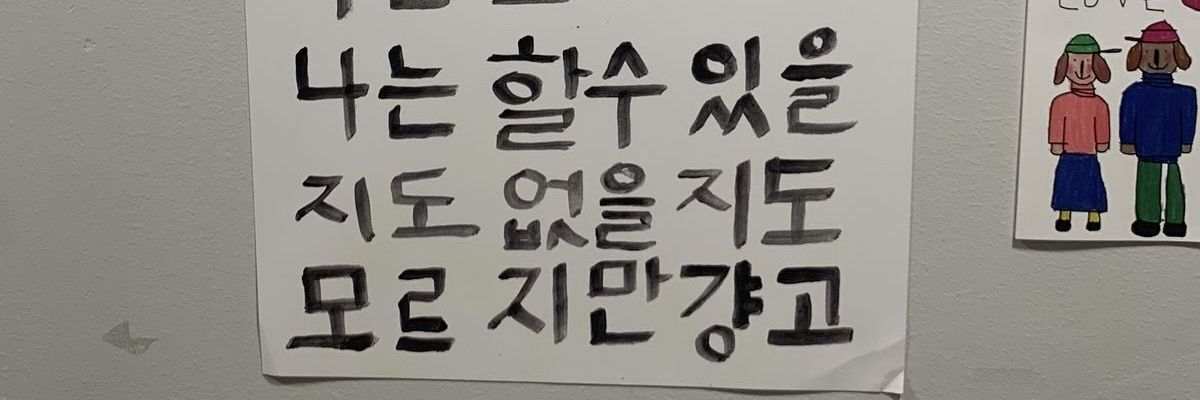 나는 할수 있을
지도 없을 지도
모르 지만걍고
LOVE